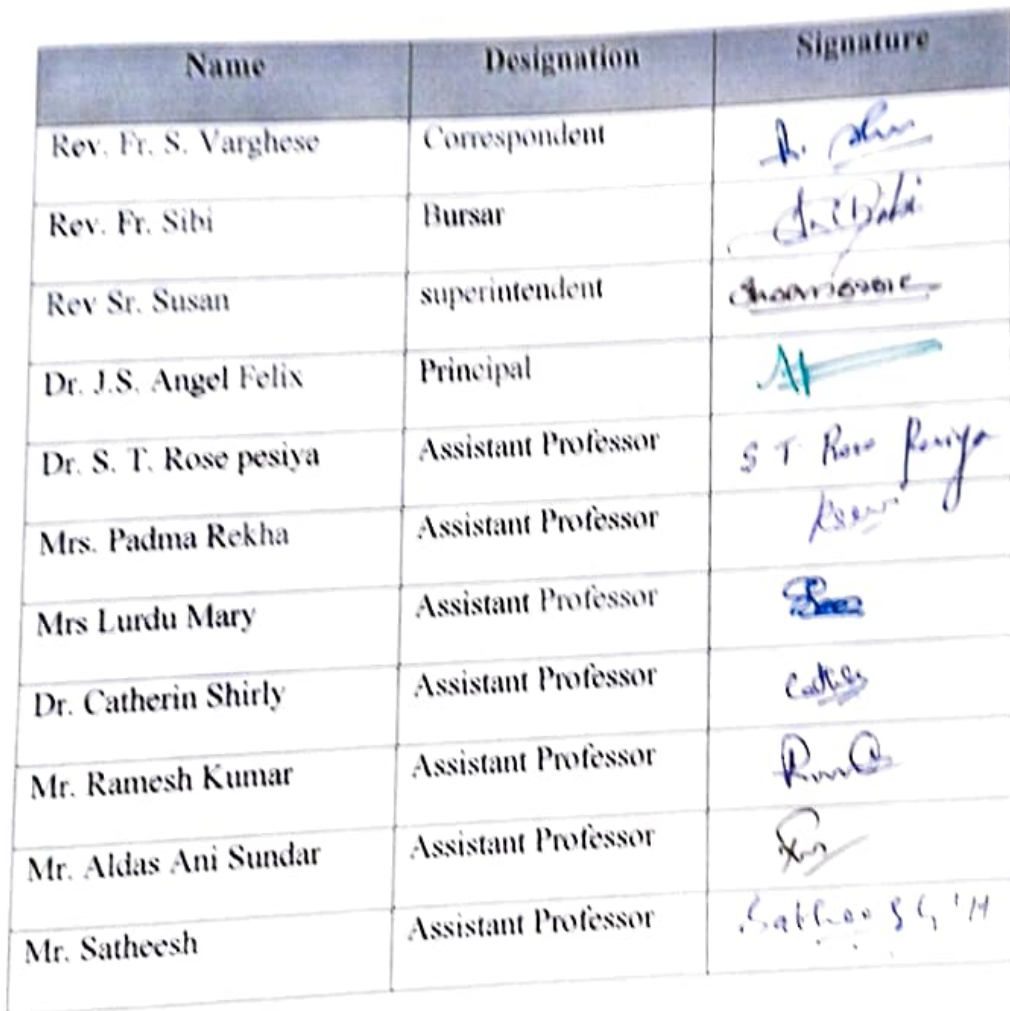 Name Designation Signature
Rev. Fr. S. Varghese Correspondent
Rev. Fr. Sibi Bursar
Rev Sr. Susan superintendent
Dr. J.S. Angel Felix Principal
Dr. S. T. Rose pesiya Assistant Professor S T Rose Pesiya
Mrs. Padma Rekha Assistant Professor
Mrs Lurdu Mary Assistant Professor
Dr. Catherin Shirly Assistant Professor
Mr. Ramesh Kumar Assistant Professor
Mr. Aldas Ani Sundar Assistant Professor
Mr. Satheesh Assistant Professor